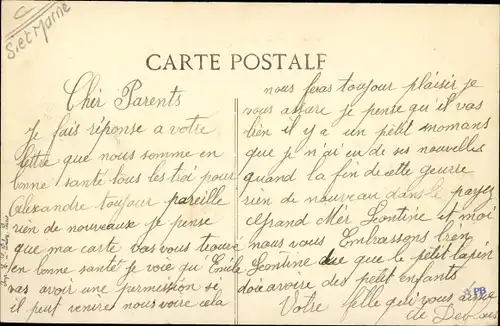 C
S. et Marne
CARTE POSTALE
Chèr Parents
Je fais réponse a votre
lettre que nous somme en
bonne santé tous les troi pour
Alexandre toujour pareille
rien de nouveaux je pense
que ma carte vas vous trouvé
en bonne santé Je voie qu'Emile
vas avoir une permission si
il peut venire nous voire cela
nous feras toujour plaisir je
vous assure je pense qu'il vas
bien il y a un petit momans
que je n'ai eu de ses nouvelles
quand la fin de cette geurre
rien de nouveau dans le payez
Grand Mér Leontine et moi
nous vous Embrassons bien
Leontine que le petit lapin
avoire des petit enfants
Votre fille qui vous aime
de
PB